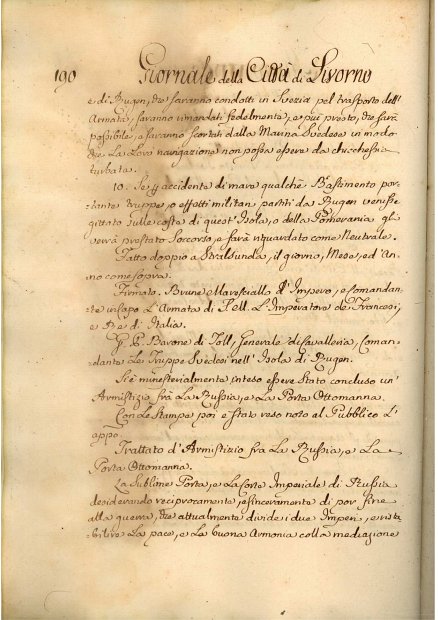 190 Giornale della Città di Livorno
e di Rugen, che saranno condotti in Svezia pel trasporto dell'
Armata, saranno rimandati fedelmente, e più presto, che sarà
possibile, e saranno scortati dalla Marina Svedese in modo
che La Loro navigazione non possa essere da chicchessia
turbata.
10. Se per accidente di mare qualche Bastimento por-
tante truppe, o effetti militari partiti da Rugen venisse
gittato sulle coste di quest'Isola, o della Pomerania gli
verrà prestato Soccorso, e sarà riguardato come Neutrale.
Fatto doppio a Stralsunda, il giorno, Mese, ed An-
no come sopra.
Firmato. Brune Maresciallo d'Impero, e Comandan-
te in Capo L'Armata di S. M. L'Imperatore de' Francesi,
e Re di Italia.
G. B. Barone di Toll, Generale di Cavalleria, Coman-
dante Le Truppe Svedesi nell'Isola di Rugen.
Si è ministerialmente inteso essere Stato concluso un'
Armistizio frà La Russia, e La Porta Ottomanna.
Con Le Stampe poi è Stato reso noto al Pubblico L'
appo.
Trattato d'Armistizio fra La Russia, e La
Porta Ottomanna.
La Sublime Porta, e La Corte Imperiale di Russia
desiderando reciprocamente, e sinceramente di por fine
alla guerra, che attualmente divide i due Imperi, e rista-
bilire La pace, e La buona Armonia colla mediazione